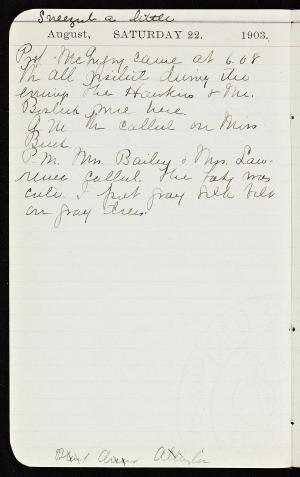 Sneezed a little
August, SATURDAY 22. 1903.
Prof. McGilvry came at 6.08
all visited during the
evening the Hawkins & Mr.
were here.
A.M. called on Miss
P.M. Mrs. Bailey & Mrs. Law-
rence called. The baby was
cute. I put gray silk belt
on gray dress.